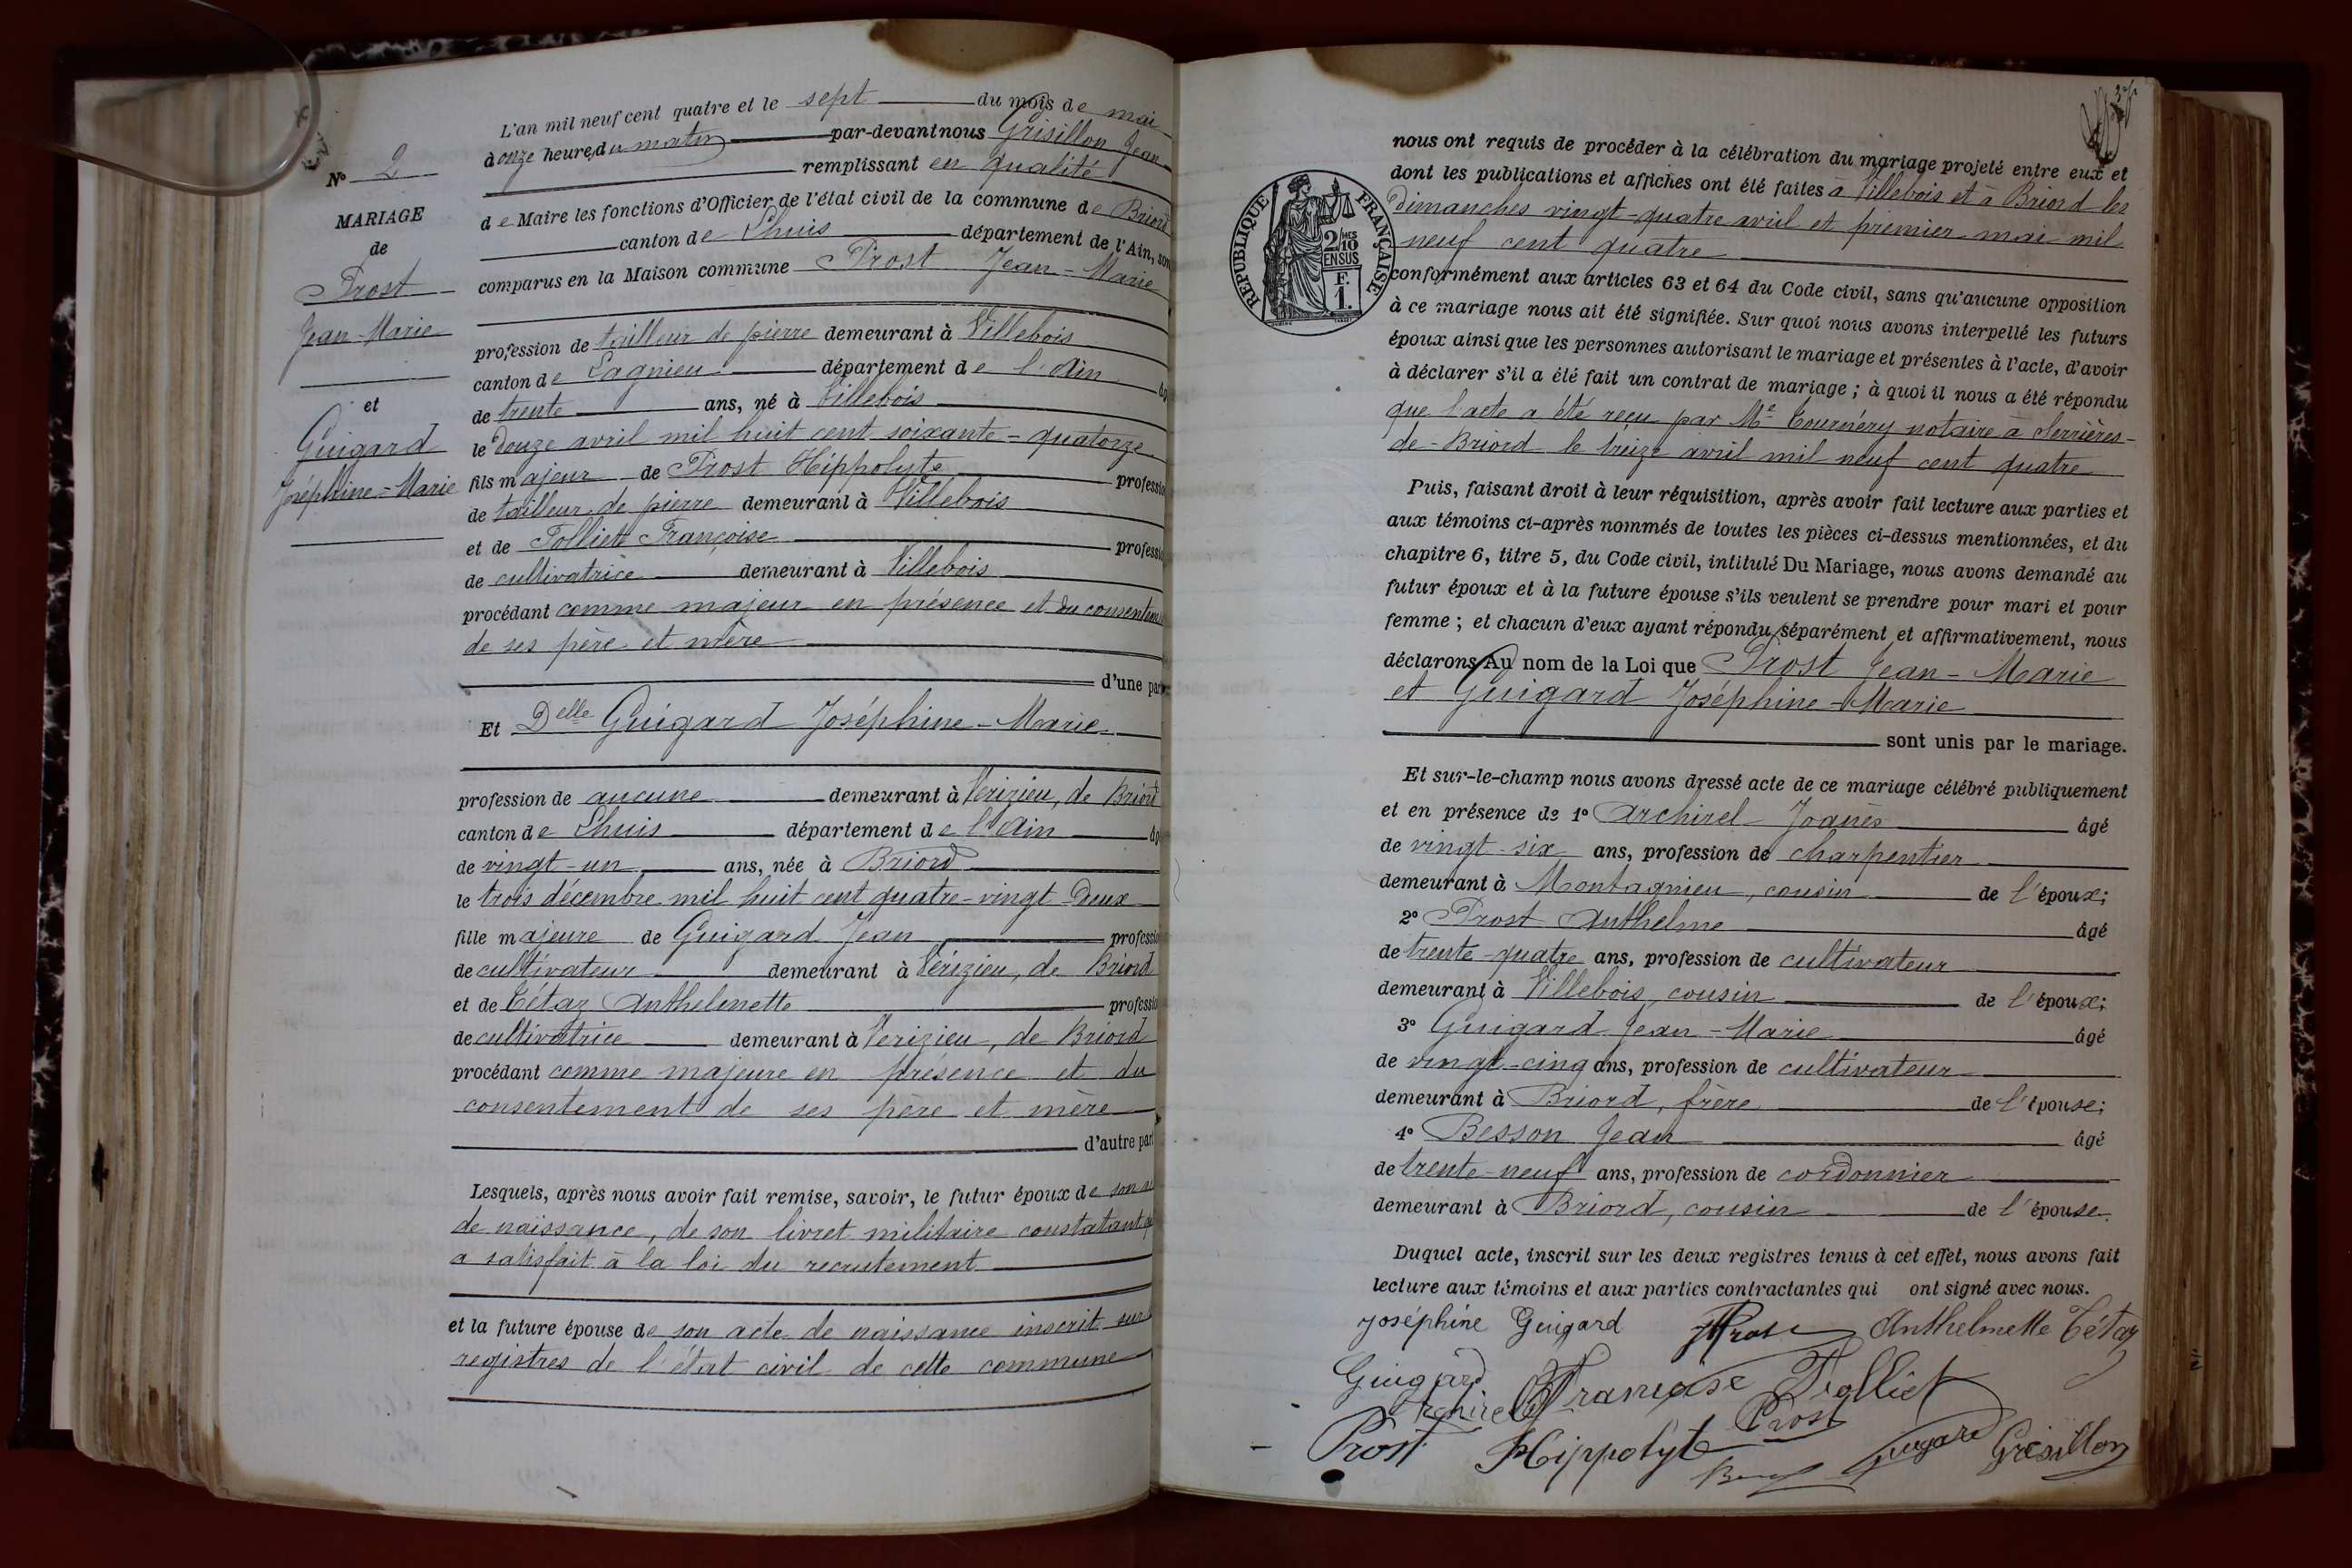 N° 2
MARIAGE
de
Prost
Jean-Marie
et
Guigard
Joséphine-Marie
L'an mil neuf cent quatre et le sept du mois de mai
à onze heures du matin par-devant nous Grisillon Jean
remplissant en qualité
de Maire les fonctions d'Officier de l'état civil de la commune de Briord
canton de Lhuis département de l'Ain, son
comparus en la Maison commune Prost Jean-Marie
profession de tailleur de pierre demeurant à Villebois
canton de Lagnieu département de l'Ain
de trente ans, né à Villebois
le douze avril mil huit cent soixante-quatorze
fils majeur de Prost Hippolyte professio
de tailleur de pierre demeurant à Villebois
et de Tolliet Françoise professio
de cultivatrice demeurant à Villebois
procédant comme majeur en présence et du consentem
de ses père et mère
d'une par
Et Delle Guigard Joséphine-Marie
profession de aucune demeurant à Vérizieu, de Briord
canton de Lhuis département de l'Ain âg
de vingt-un ans, née à Briord
le trois décembre mil huit cent quatre-vingt-deux
fille majeure de Guigard Jean professio
de cultivateur demeurant à Vérizieu, de Briord
et de Tétaz Anthelmette professio
de cultivatrice demeurant à Verizieu, de Briord
procédant comme majeure en présence et du
consentement de ses père et mère
d'autre part
Lesquels, après nous avoir fait remise, savoir, le futur époux de son
de naissance, de son livret militaire constatant
a satisfait à la loi du recrutement
et la future épouse de son acte de naissance inscrit sur
registres de l'état civil de cette commune
RÉPUBLIQUE FRANÇAISE
2/10 MES
EN SUS
F.
1.
nous ont requis de procéder à la célébration du mariage projeté entre eux et
dont les publications et affiches ont été faites à Villebois et à Briord les
dimanches vingt-quatre avril et premier mai mil
neuf cent quatre
conformément aux articles 63 et 64 du Code civil, sans qu'aucune opposition
à ce mariage nous ait été signifiée. Sur quoi nous avons interpellé les futurs
époux ainsi que les personnes autorisant le mariage et présentes à l'acte, d'avoir
à déclarer s'il a été fait un contrat de mariage ; à quoi il nous a été répondu
que l'acte a été reçu par Me Tournéry notaire à Serrières-
de-Briord le treize avril mil neuf cent quatre
Puis, faisant droit à leur réquisition, après avoir fait lecture aux parties et
aux témoins ci-après nommés de toutes les pièces ci-dessus mentionnées, et du
chapitre 6, titre 5, du Code civil, intitulé Du Mariage, nous avons demandé au
futur époux et à la future épouse s'ils veulent se prendre pour mari et pour
femme ; et chacun d'eux ayant répondu séparément et affirmativement, nous
déclarons Au nom de la Loi que Prost Jean-Marie
et Guigard Joséphine-Marie
sont unis par le mariage.
Et sur-le-champ nous avons dressé acte de ce mariage célébré publiquement
et en présence de 1° Archirel Joanès âgé
de vingt-six ans, profession de charpentier
demeurant à Montagnieu, cousin de l'époux;
2° Prost Anthelme âgé
de trente-quatre ans, profession de cultivateur
demeurant à Villebois, cousin de l'époux;
3° Guigard Jean-Marie âgé
de vingt-cinq ans, profession de cultivateur
demeurant à Briord, frère de l'épouse;
4° Besson Jean âgé
de trente-neuf ans, profession de cordonnier
demeurant à Briord, cousin de l'épouse.
Duquel acte, inscrit sur les deux registres tenus à cet effet, nous avons fait
lecture aux témoins et aux parties contractantes qui ont signé avec nous.
Joséphine Guigard JProst Anthelmette Tétaz
Guigard Françoise Tolliet
Archirel Prost
Prost Hippolyte Guigard Grisillon